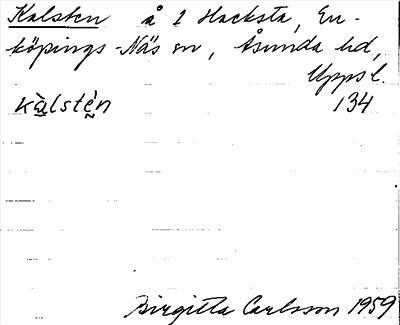 Kalsten å 2 Hacksta, En-
köpings-Näs sn, Åsunda hd,
Uppsl.
kàlstén 134
Birgitta Carlsson 1959